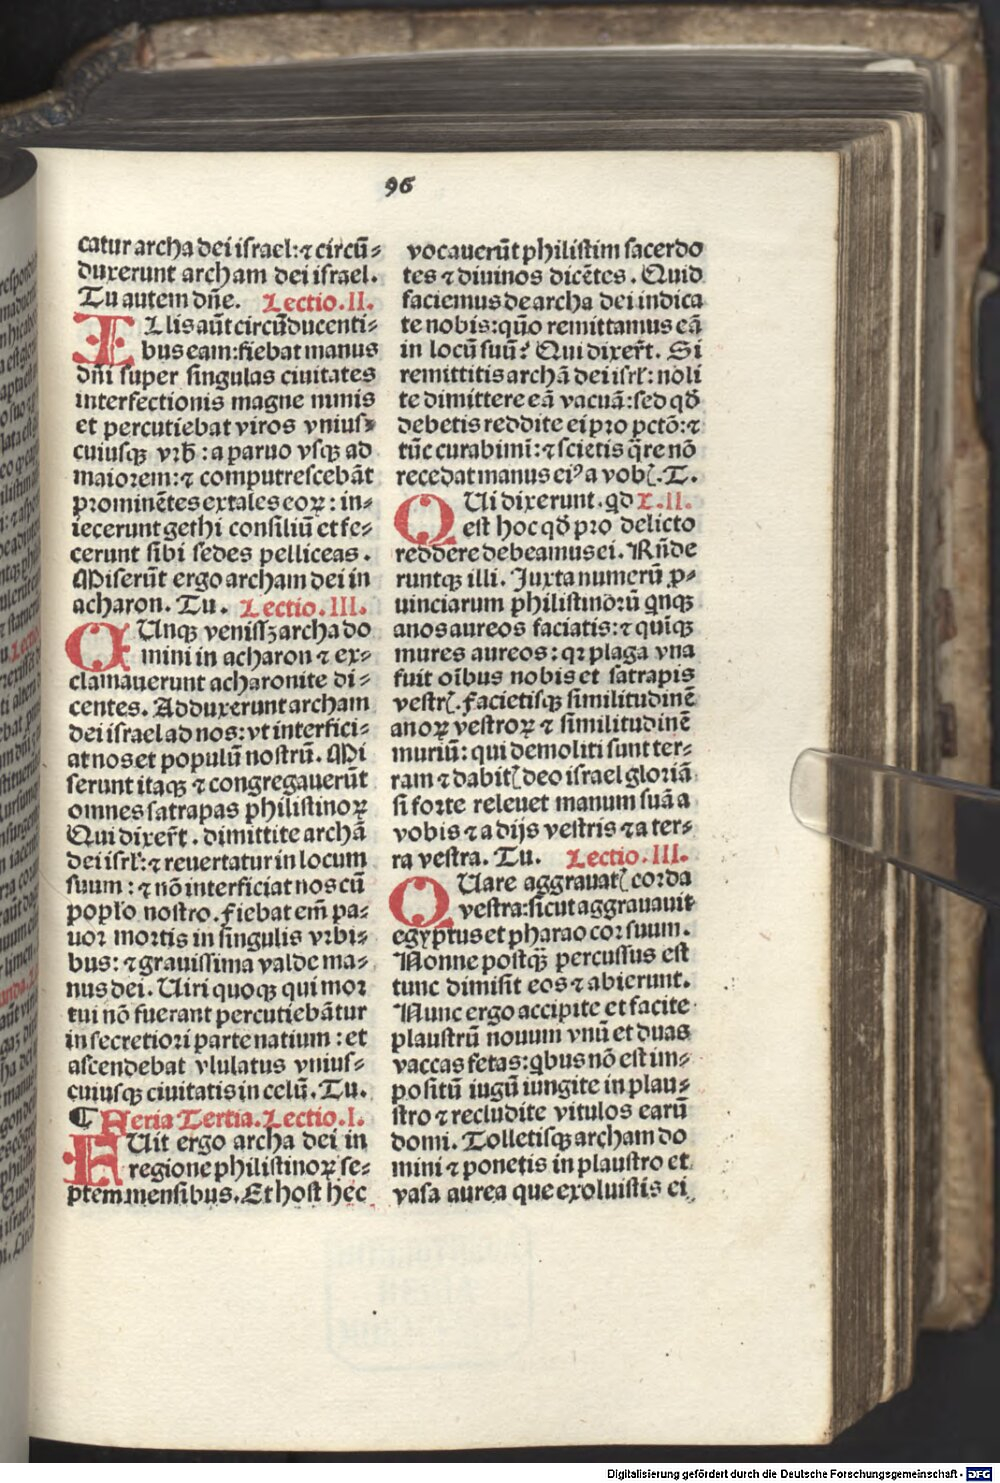 96
catur archa dei israel: ⁊ circū⸗
duxerunt archam dei israel.
Tu autem dn̄e. Lectio.II.
ILlis aūt circūducenti⸗
bus eam: fiebat manus
dn̄i super singulas ciuitates
interfectionis magne nimis
et percutiebat viros vnius⸗
cuiusqꝫ vrb̄: a paruo vsqꝫ ad
maiorem: ⁊ computrescebāt
prominētes extales eoꝝ: in⸗
iecerunt gethi consiliū et fe⸗
cerunt sibi sedes pelliceas.
Miserūt ergo archam dei in
acharon. Tu. Lectio.III.
CUnqꝫ venissꝫ archa do
mini in acharon ⁊ ex⸗
clamauerunt acharonite di⸗
centes. Adduxerunt archam
dei israel ad nos: vt interfici⸗
at nos et populū nostrū. Mi
serunt itaqꝫ ⁊ congregauerūt
omnes satrapas philistinoꝝ
Qui dixer̄t. dimittite archā
dei isrl̄: ⁊ reuertatur in locum
suum: ⁊ nō interficiat nos cū
popl̄o nostro. fiebat em̄ pa⸗
uor mortis in singulis vrbi⸗
bus: ⁊ grauissima valde ma⸗
nus dei. Uiri quoqꝫ qui mor
tui nō fuerant percutiebātur
in secretiori parte natium: et
ascendebat vlulatus vnius⸗
cuiusqꝫ ciuitatis in celū. Tu.
¶ Feria Tertia. Lectio.I.
FUit ergo archa dei in
regione philistinoꝝ se⸗
ptem mensibus. Et host hec
vocauerūt philistim sacerdo
tes ⁊ diuinos dicētes. Quid
faciemus de archa dei indica
te nobis: quō remittamus eā
in locū suū? Qui dixer̄t. Si
remittitis archā dei isrl̄: noli
te dimittere eā vacuā: sed qd̄
debetis reddite ei pro pctō: ⁊
tūc curabimī: ⁊ scietis q̄re nō
recedat manus eiꝰ a vob̄. T.
QUi dixerunt. qd L.II.
est hoc qd̄ pro delicto
reddere debeamus ei. Rn̄de
runtqꝫ illi. Iuxta numerū ꝓ⸗
uinciarum philistinorū qnqꝫ
anos aureos faciatis: ⁊ quīqꝫ
mures aureos: qꝛ plaga vna
fuit oībus nobis et satrapis
vestr̄. facietisqꝫ similitudinē
anoꝝ vestroꝝ ⁊ similitudinē
muriū: qui demoliti sunt ter⸗
ram ⁊ dabit̄ deo israel gloriā
si forte releuet manum suā a
vobis ⁊ a dijs vestris ⁊ a ter⸗
ra vestra. Tu. Lectio.III.
QUare aggrauat̄ corda
vestra: sicut aggrauauit
egyptus et pharao cor suum.
Nonne postqꝫ̄ percussus est
tunc dimisit eos ⁊ abierunt.
Nunc ergo accipite et facite
plaustrū nouum vnū et duas
vaccas fetas: qbus nō est im⸗
positū iugū iungite in plau⸗
stro ⁊ recludite vitulos earū
domi. Tolletisqꝫ archam do
mini ⁊ ponetis in plaustro et
vasa aurea que exoluistis ei
Digitalisierung gefördert durch die Deutsche Forschungsgemeinschaft - DFG